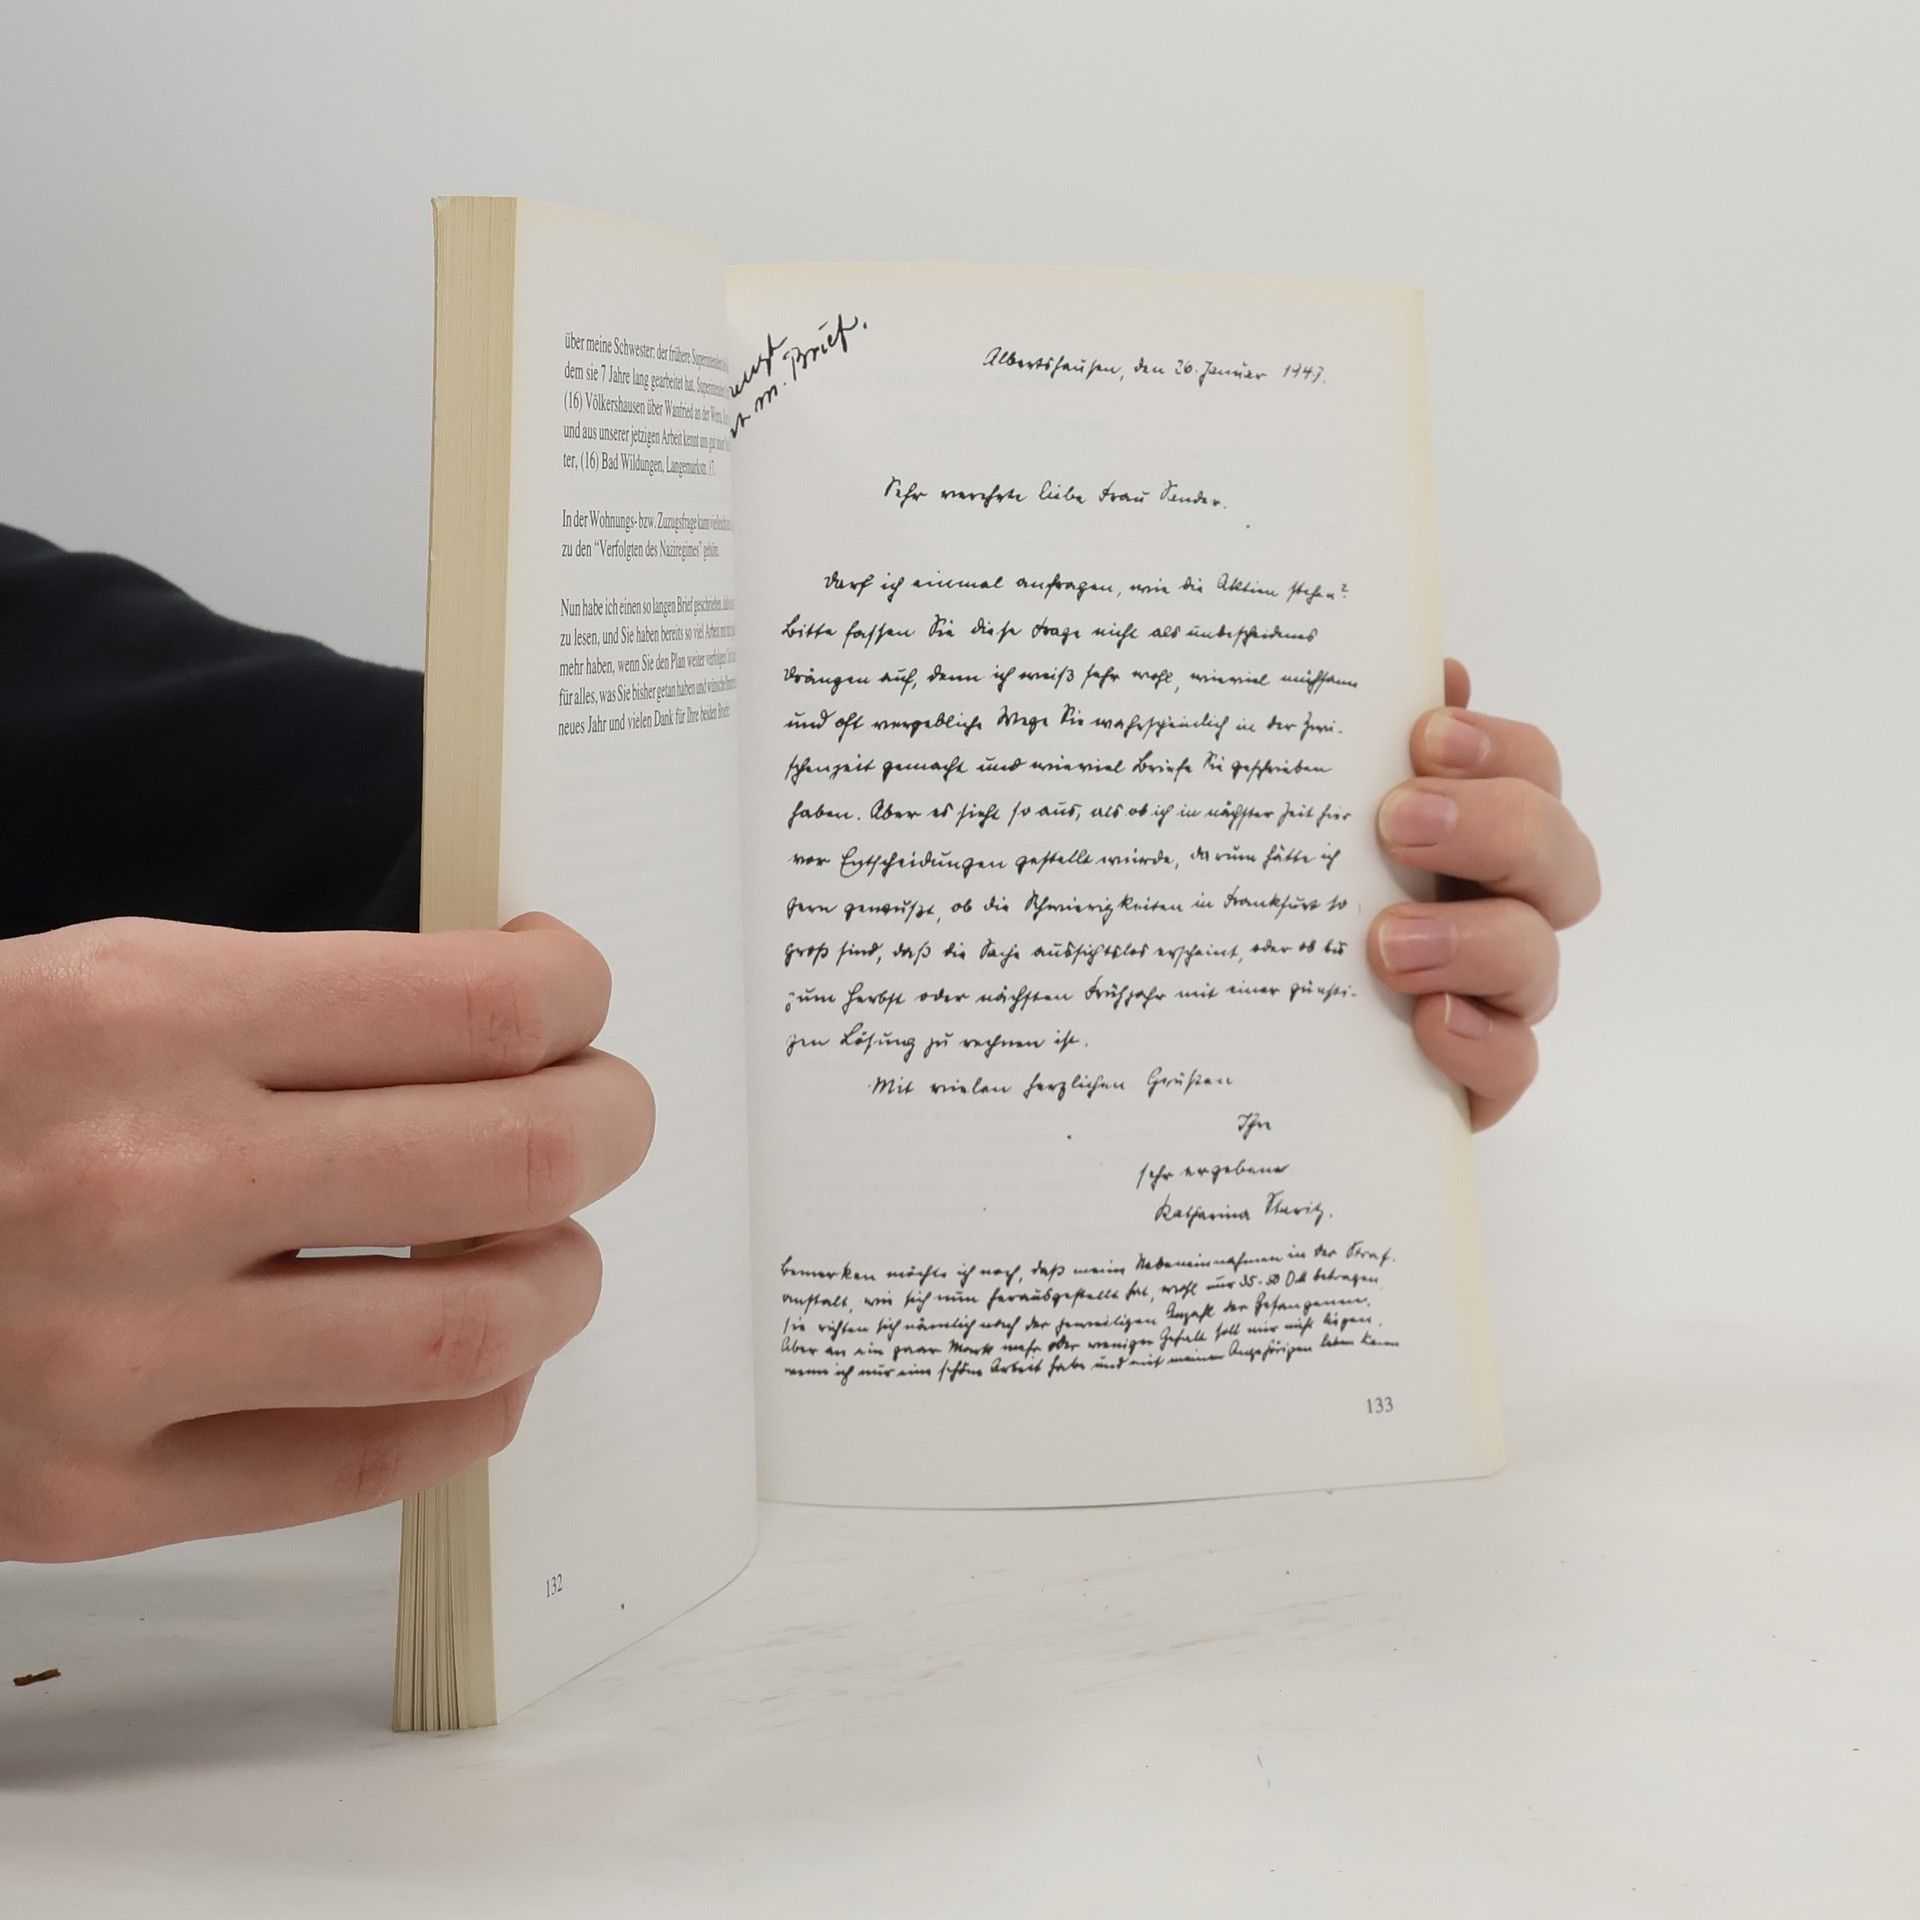 über meine Schwester: der frühere
dem sie 7 Jahre lang gearbeitet hat,
(16) Völkershausen über Wanfried an der Werra,
und aus unserer jetzigen Arbeit kennt uns gut
ter, (16) Bad Wildungen, Langemarkstr. 17.
In der Wohnungs- bzw. Zuzugsfrage kann
zu den “Verfolgten des Naziregimes” gehöre.
Nun habe ich einen so langen Brief geschrieben,
zu lesen, und Sie haben bereits so viel Arbeit mit
mehr haben, wenn Sie den Plan weiter verfolgen!
für alles, was Sie bisher getan haben und wünsche
neues Jahr und vielen Dank für Ihre beiden Briefe!
132
m. Brief.
Albertshausen, den 26. Januar 1947.
Sehr verehrte liebe Frau Sander.
Darf ich einmal anfragen, wie die Aktien stehen?
Bitte fassen Sie diese Frage nicht als unbescheidenes
Drängen auf, denn ich weiß sehr wohl, wieviel mühsame
und oft vergebliche Wege Sie wahrscheinlich in der Zwi-
schenzeit gemacht und wieviel Briefe Sie geschrieben
haben. Aber es sieht so aus, als ob ich in nächster Zeit hier
vor Entscheidungen gestellt würde, darum hätte ich
gern gewußt, ob die Schwierigkeiten in Frankfurt so
groß sind, daß die Sache aussichtslos erscheint, oder ob bis
zum Herbst oder nächsten Frühjahr mit einer günsti-
gen Lösung zu rechnen ist.
Mit vielen herzlichen Grüßen
Ihre
sehr ergebene
Katharina Staritz.
Bemerken möchte ich noch, daß meine Nebeneinnahmen in der Straf-
anstalt, wie sich nun herausgestellt hat, wohl nur betragen
sie richten sich nämlich nach der jeweiligen Anzahl der Gefangenen.
Aber an ein paar Mark mehr oder weniger Gehalt soll mir nicht liegen,
wenn ich nur eine schöne Arbeit habe und mit meinen Angehörigen leben kann
133